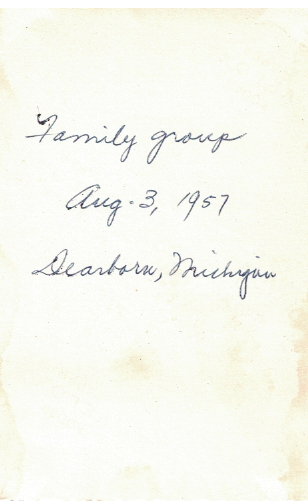 Family group
Aug. 3, 1957
Dearborn, Michigan